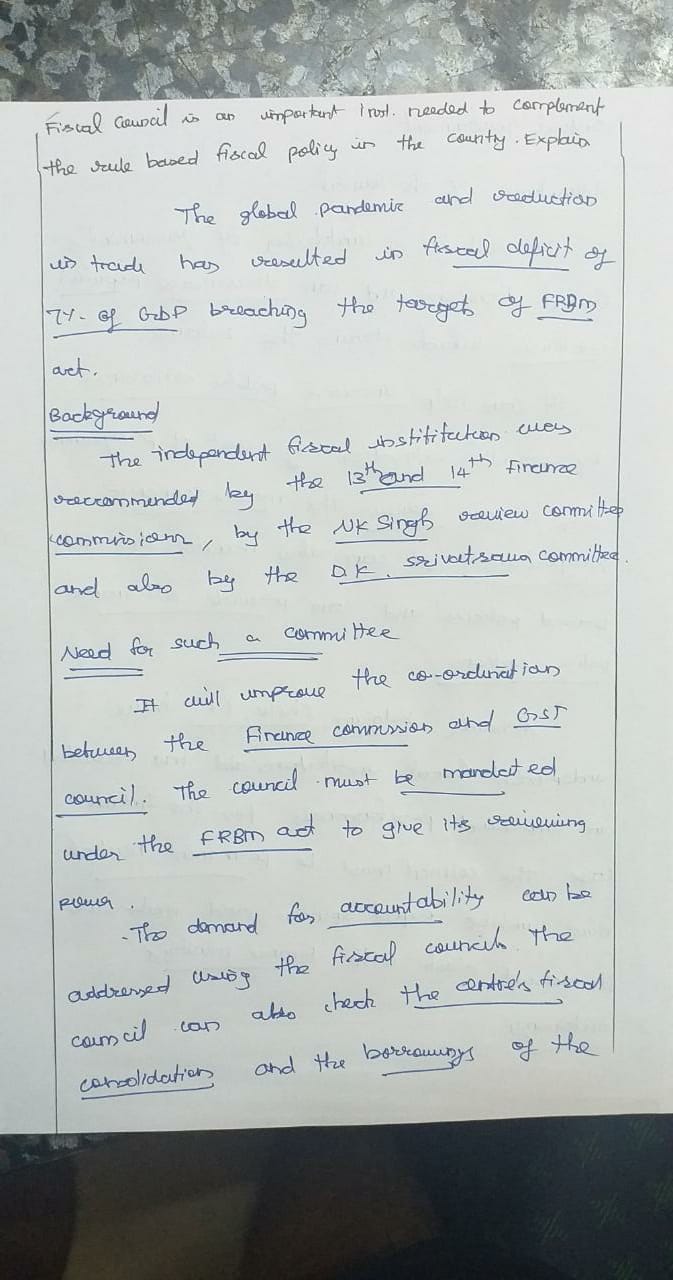 Fiscal Council is an important Inst. needed to complement
the rule based fiscal policy in the county. Explain
The global pandemic and reduction
in trade has resulted in fiscal deficit of
7%. of GDP breaching the targets of FRBM
act.
Background
The independent fiscal institution was
reccommended by the 13th and 14th Finance
commission, by the NK Singh review committee
and also by the D.K. srivatsava committee.
Need for such a committee
It will improve the co-ordination
between the Finance commission and GST
council. The council must be mandated
under the FRBM act to give its reviewing
power.
The demand for accountability can be
addressed using the fiscal council. The
council can also check the centre's fiscal
consolidation and the borrowings of the